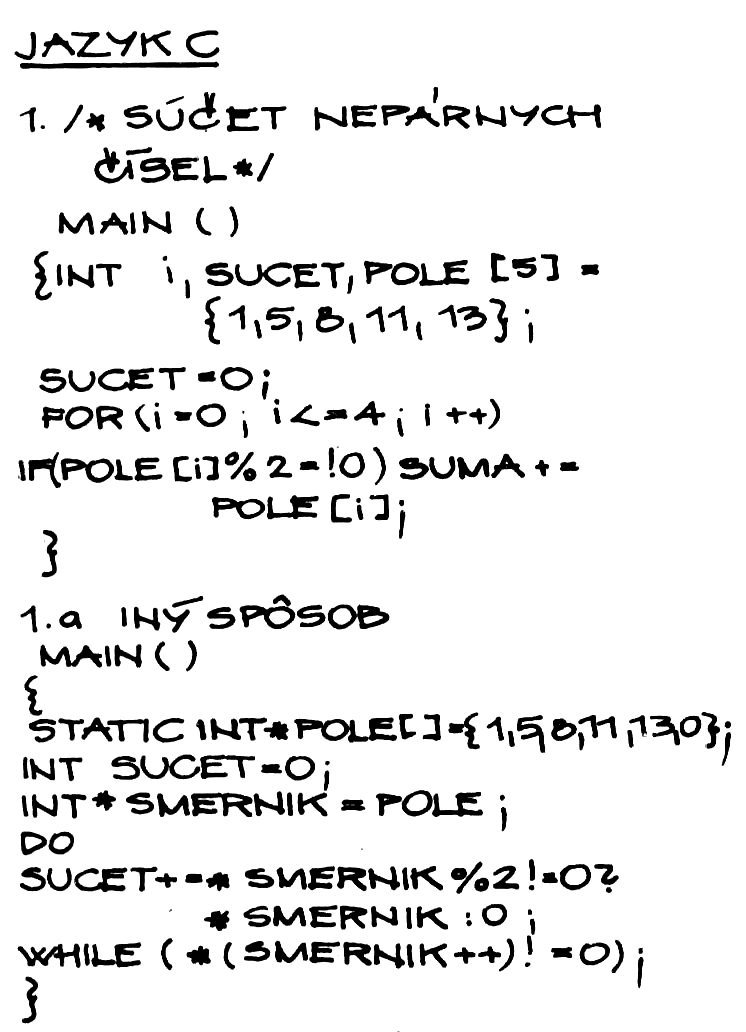 JAZYK C
1. /* SÚČET NEPÁRNYCH
ČÍSEL */
MAIN ( )
{INT i, SUCET, POLE [5] =
{1,5,8,11,13};
SUCET=0;
FOR (i=0; i<=4; i++)
IF(POLE [i]%2=!0) SUMA+=
POLE [i];
}
1.a INÝ SPÔSOB
MAIN ( )
{
STATIC INT*POLE[]={1,5,8,11,13,0};
INT SUCET=0;
INT* SMERNIK = POLE;
DO
SUCET+=* SMERNIK %2!=0?
* SMERNIK : 0;
WHILE (*(SMERNIK++)! =0);
}